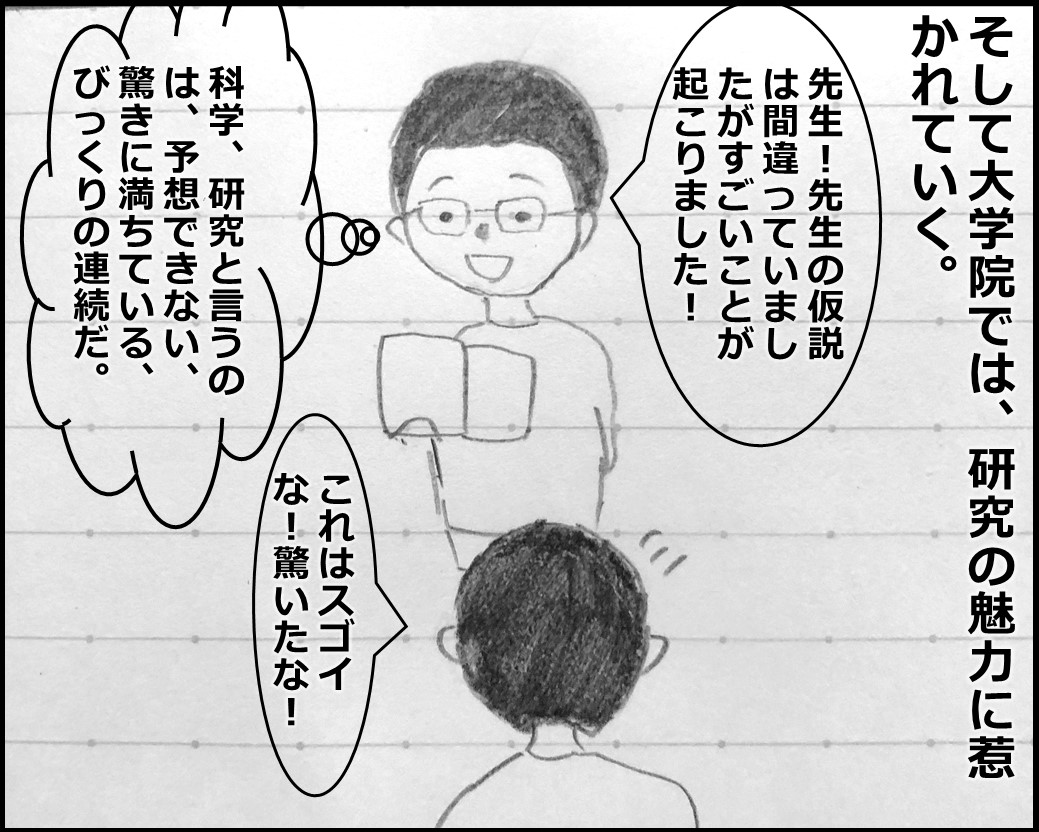 そして大学院では、研究の魅力に惹
かれていく。
先生！先生の仮説
は間違っていまし
たがすごいことが
起こりました！
科学、研究と言うの
は、予想できない、
驚きに満ちている、
びっくりの連続だ。
これはスゴイ
な！驚いたな！